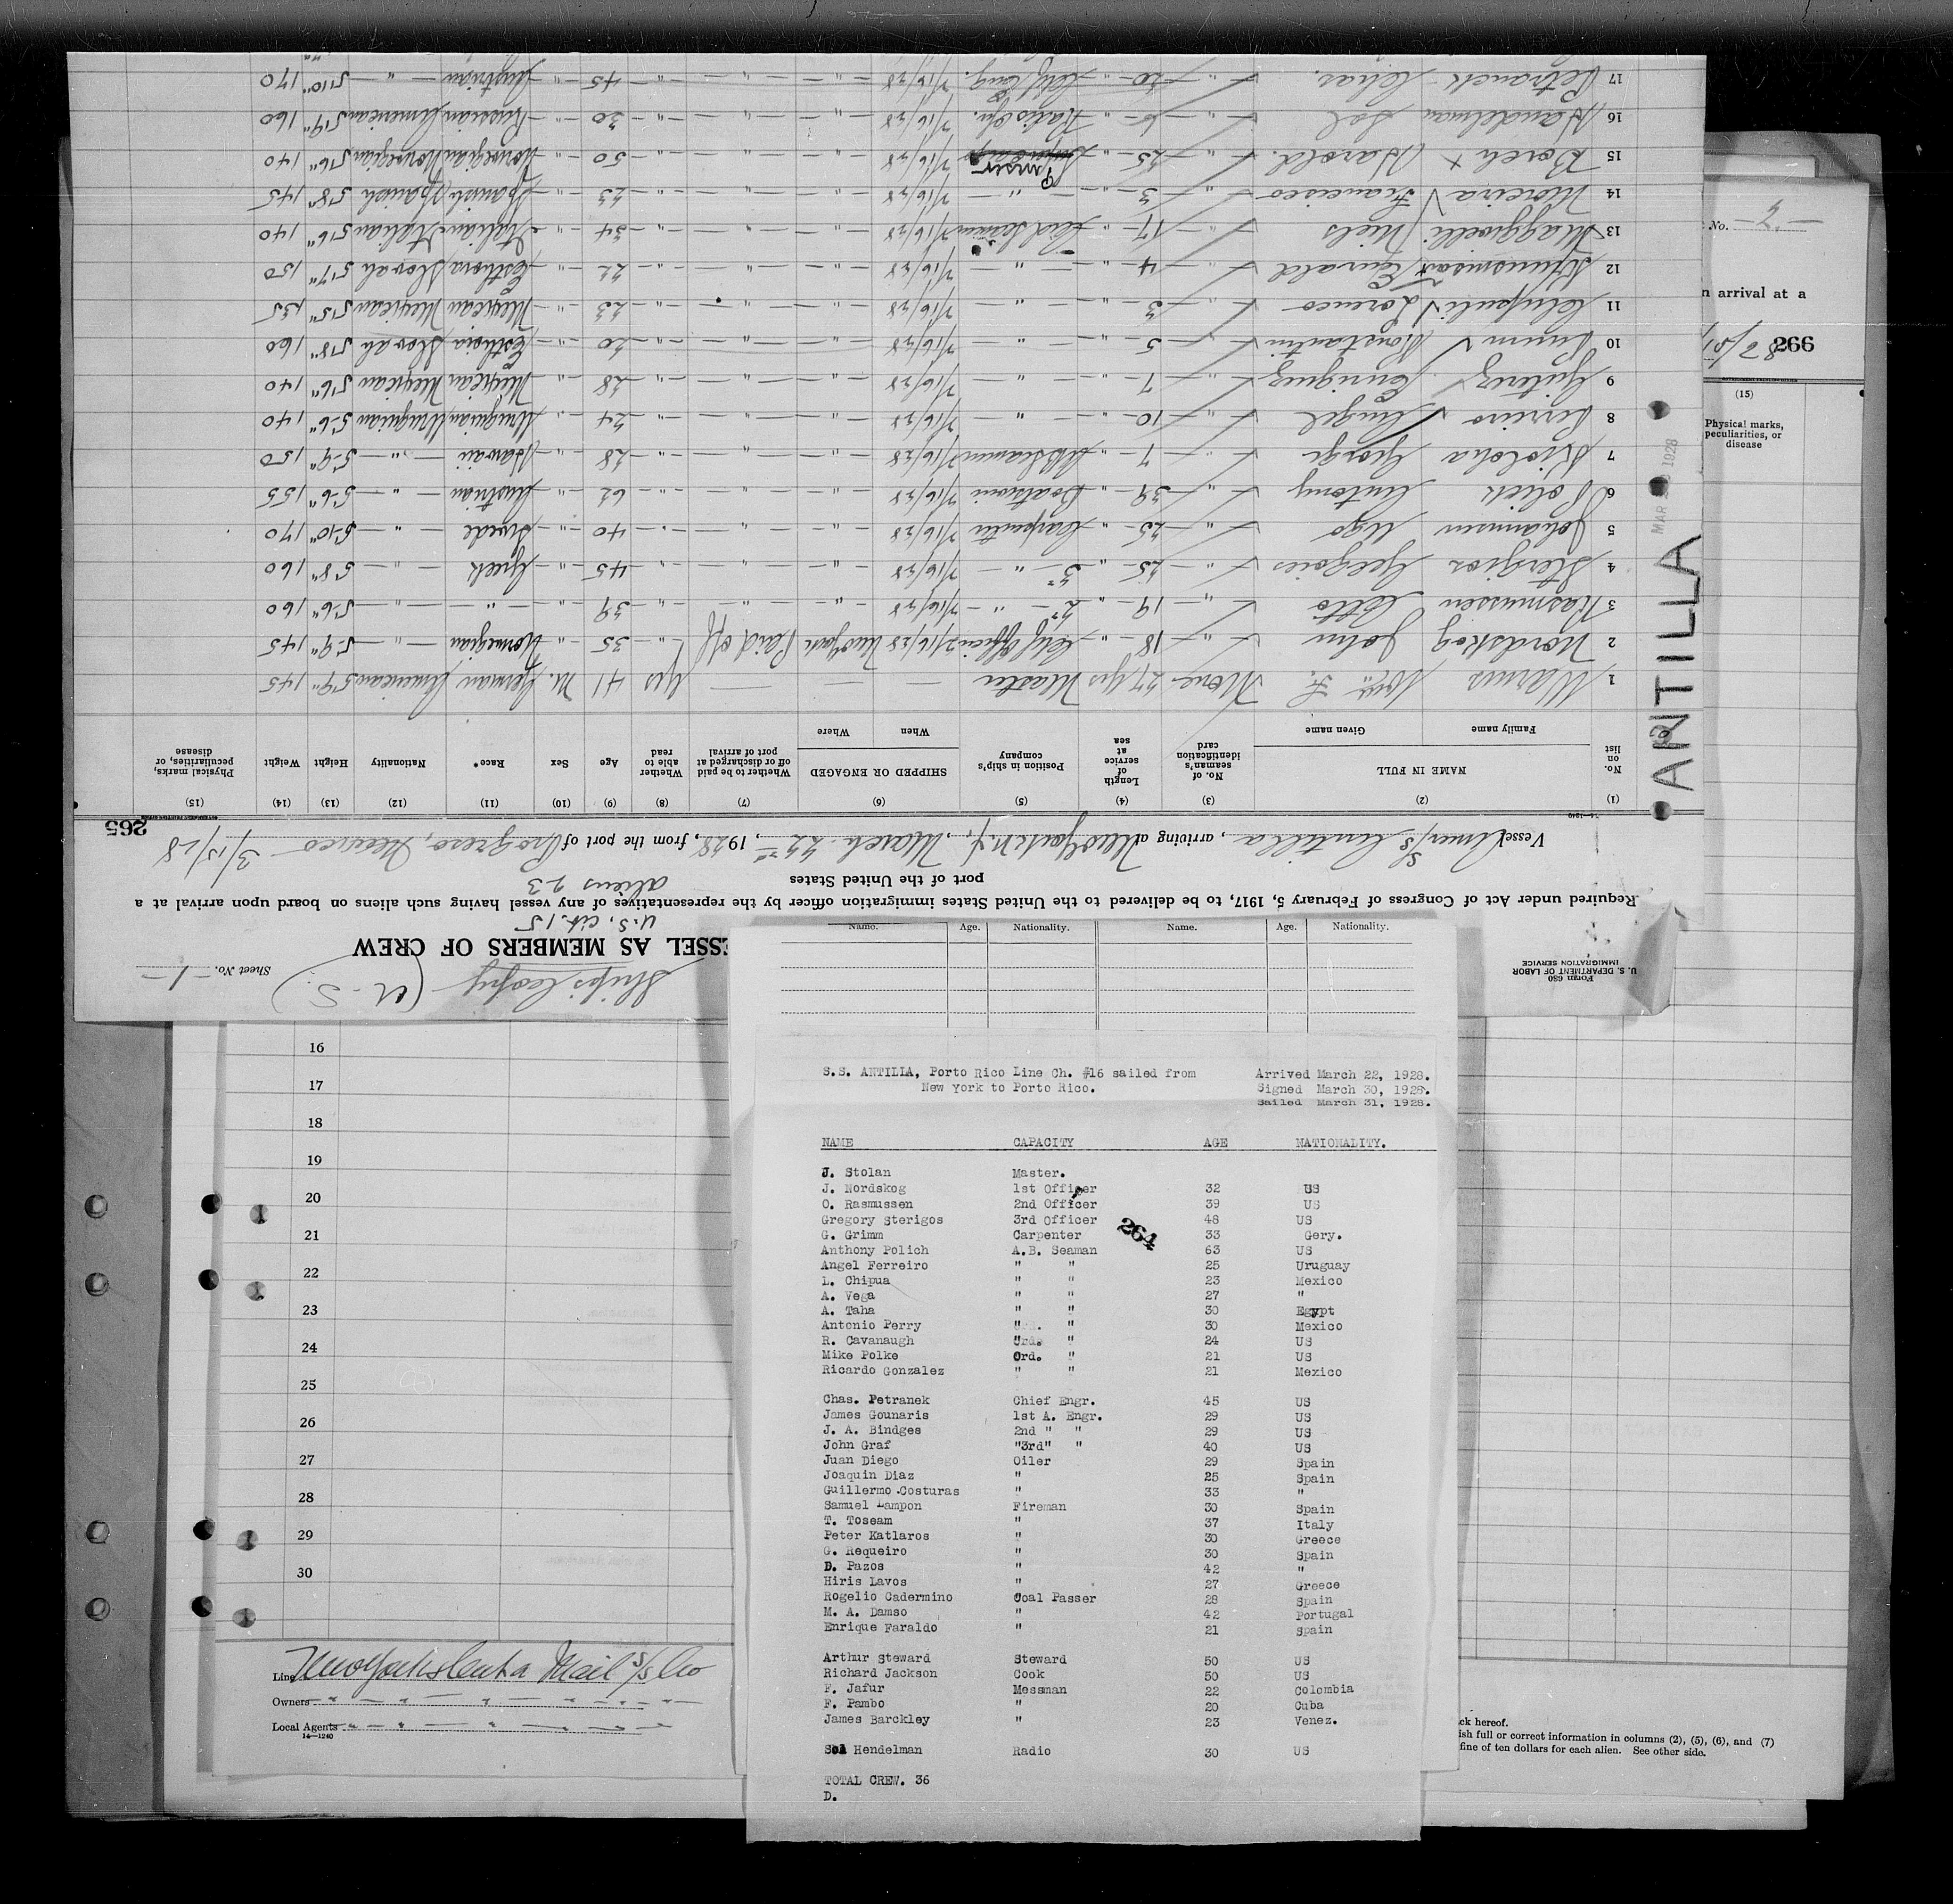 Form 680
U. S. DEPARTMENT OF LABOR
IMMIGRATION SERVICE
Ship's Copy (U. S.)
Sheet No. -1-
ESSEL AS MEMBERS OF CREW
U.S. Cit. 15
aliens 23
Required under Act of Congress of February 5, 1917, to be delivered to the United States immigration officer by the representatives of any vessel having such aliens on board upon arrival at a
port of the United States
Vessel S/S Antilla, arriving at New York N.Y., March 22nd, 1928, from the port of Progreso, Mexico 3/15/28
14—1240
265
ANTILLA
MAR 1928
(1) (2) (3) (4) (5) (6) (7) (8) (9) (10) (11) (12) (13) (14) (15)
No. on list NAME IN FULL No. of seaman's identification card Length of service at sea Position in ship's company SHIPPED OR ENGAGED Whether to be paid off or discharged at port of arrival Whether able to read Age Sex Race* Nationality Height Weight Physical marks, peculiarities, or disease
Family name Given name When Where
1 Warms Wm. F. None 27 Yrs Master — — — Yes 41 M. German American 5'9" 145
2 Nordskog John " 18 " Chf Officer 2/16/28 New York Paid off " 35 " Norwegian " 5-9" 145
3 Rasmussen Otto " 19 " 2nd " 2/16/28 " " " 39 " " " 5-6" 160
4 Stergios Gregorios " 25 " 3rd " 2/16/28 " " " 45 " Greek " 5'8" 160
5 Johannsen Hugo " 25 " Carpenter 2/16/28 " " " 40 " Swede " 5-10" 170
6 Polich Antony " 39 " Boatswain 2/16/28 " " " 62 " Austrian " 5-6" 155
7 George " 7 " AB Seaman 2/16/28 " " " 28 " Hawaii " 5-9" 150
8 Ferreiro Angel " 10 " " 2/16/28 " " " 24 " Uruguian Uruguian 5-6" 140
9 Guterez Enriquez " 7 " " 2/16/28 " " " 28 " Mexican Mexican 5'6" 140
10 Konstantin " 5 " " 2/16/28 " " " 20 " Esthonia Slovak 5'8" 160
11 Lorenco " 3 " " 2/16/28 " " " 23 " Mexican Mexican 5'5" 135
12 Evald " 4 " " 2/16/28 " " " 22 " Esthonia Slovak 5'7" 150
13 Niels " 17 " Ord Seaman 2/16/28 " " " 34 " Italian Italian 5'6" 140
14 Moreira Francisco " 3 " " 2/16/28 " " " 23 " Spanish Spanish 5'8" 145
15 Borch x Harold. " 25 " Purser 2/16/28 " " " 50 " Norwegian Norwegian 5'6" 140
16 Handelman Sol " 6 " Radio Opr. 2/16/28 " " " 30 " Russian American 5'9" 160
17 Petranek Chas. " 20 " Chf Eng. 2/16/28 " " " 45 " Austrian " 5'10" 170
No. -3-
n arrival at a
266
(15)
Physical marks,
peculiarities, or
disease
Name. Age. Nationality. Name. Age. Nationality.
S.S. ANTILIA, Porto Rico Line Ch. #16 sailed from Arrived March 22, 1928.
New York to Porto Rico. Signed March 30, 1928.
Sailed March 31, 1928.
NAME CAPACITY AGE NATIONALITY.
J. Stolan Master.
J. Nordskog 1st Officer 32 US
O. Rasmussen 2nd Officer 39 US
Gregory Sterigos 3rd Officer 48 US
264
G. Grimm Carpenter 33 Gery.
Anthony Polich A.B. Seaman 63 US
Angel Ferreiro " " 25 Uruguay
L. Chipua " " 23 Mexico
A. Vega " " 27 "
A. Taha " " 30 Egypt
Antonio Perry " " 30 Mexico
R. Cavanaugh Ord. " 24 US
Mike Polke Ord. " 21 US
Ricardo Gonzalez " " 21 Mexico
Chas. Petranek Chief Engr. 45 US
James Gounaris 1st A. Engr. 29 US
J. A. Bindges 2nd " " 29 US
John Graf "3rd" " 40 US
Juan Diego Oiler 29 Spain
Joaquin Diaz " 25 Spain
Guillermo Costuras " 33 "
Samuel Lampon Fireman 30 Spain
T. Toseam " 37 Italy
Peter Katlaros " 30 Greece
G. Requeiro " 30 Spain
D. Pazos " 42 "
Hiris Lavos " 27 Greece
Rogelio Cadermino Coal Passer 28 Spain
M. A. Damso " 42 Portugal
Enrique Faraldo " 21 Spain
Arthur Steward Steward 50 US
Richard Jackson Cook 50 US
F. Jafur Messman 22 Colombia
F. Pambo " 20 Cuba
James Barckley " 23 Venez.
Sol Hendelman Radio 30 US
TOTAL CREW. 36
D.
16
17
18
19
20
21
22
23
24
25
26
27
28
29
30
Line New York & Cuba Mail S/S Co
Owners " " " " "
Local Agents " " " " "
14—1240
ck hereof.
ish full or correct information in columns (2), (5), (6), and (7)
fine of ten dollars for each alien. See other side.